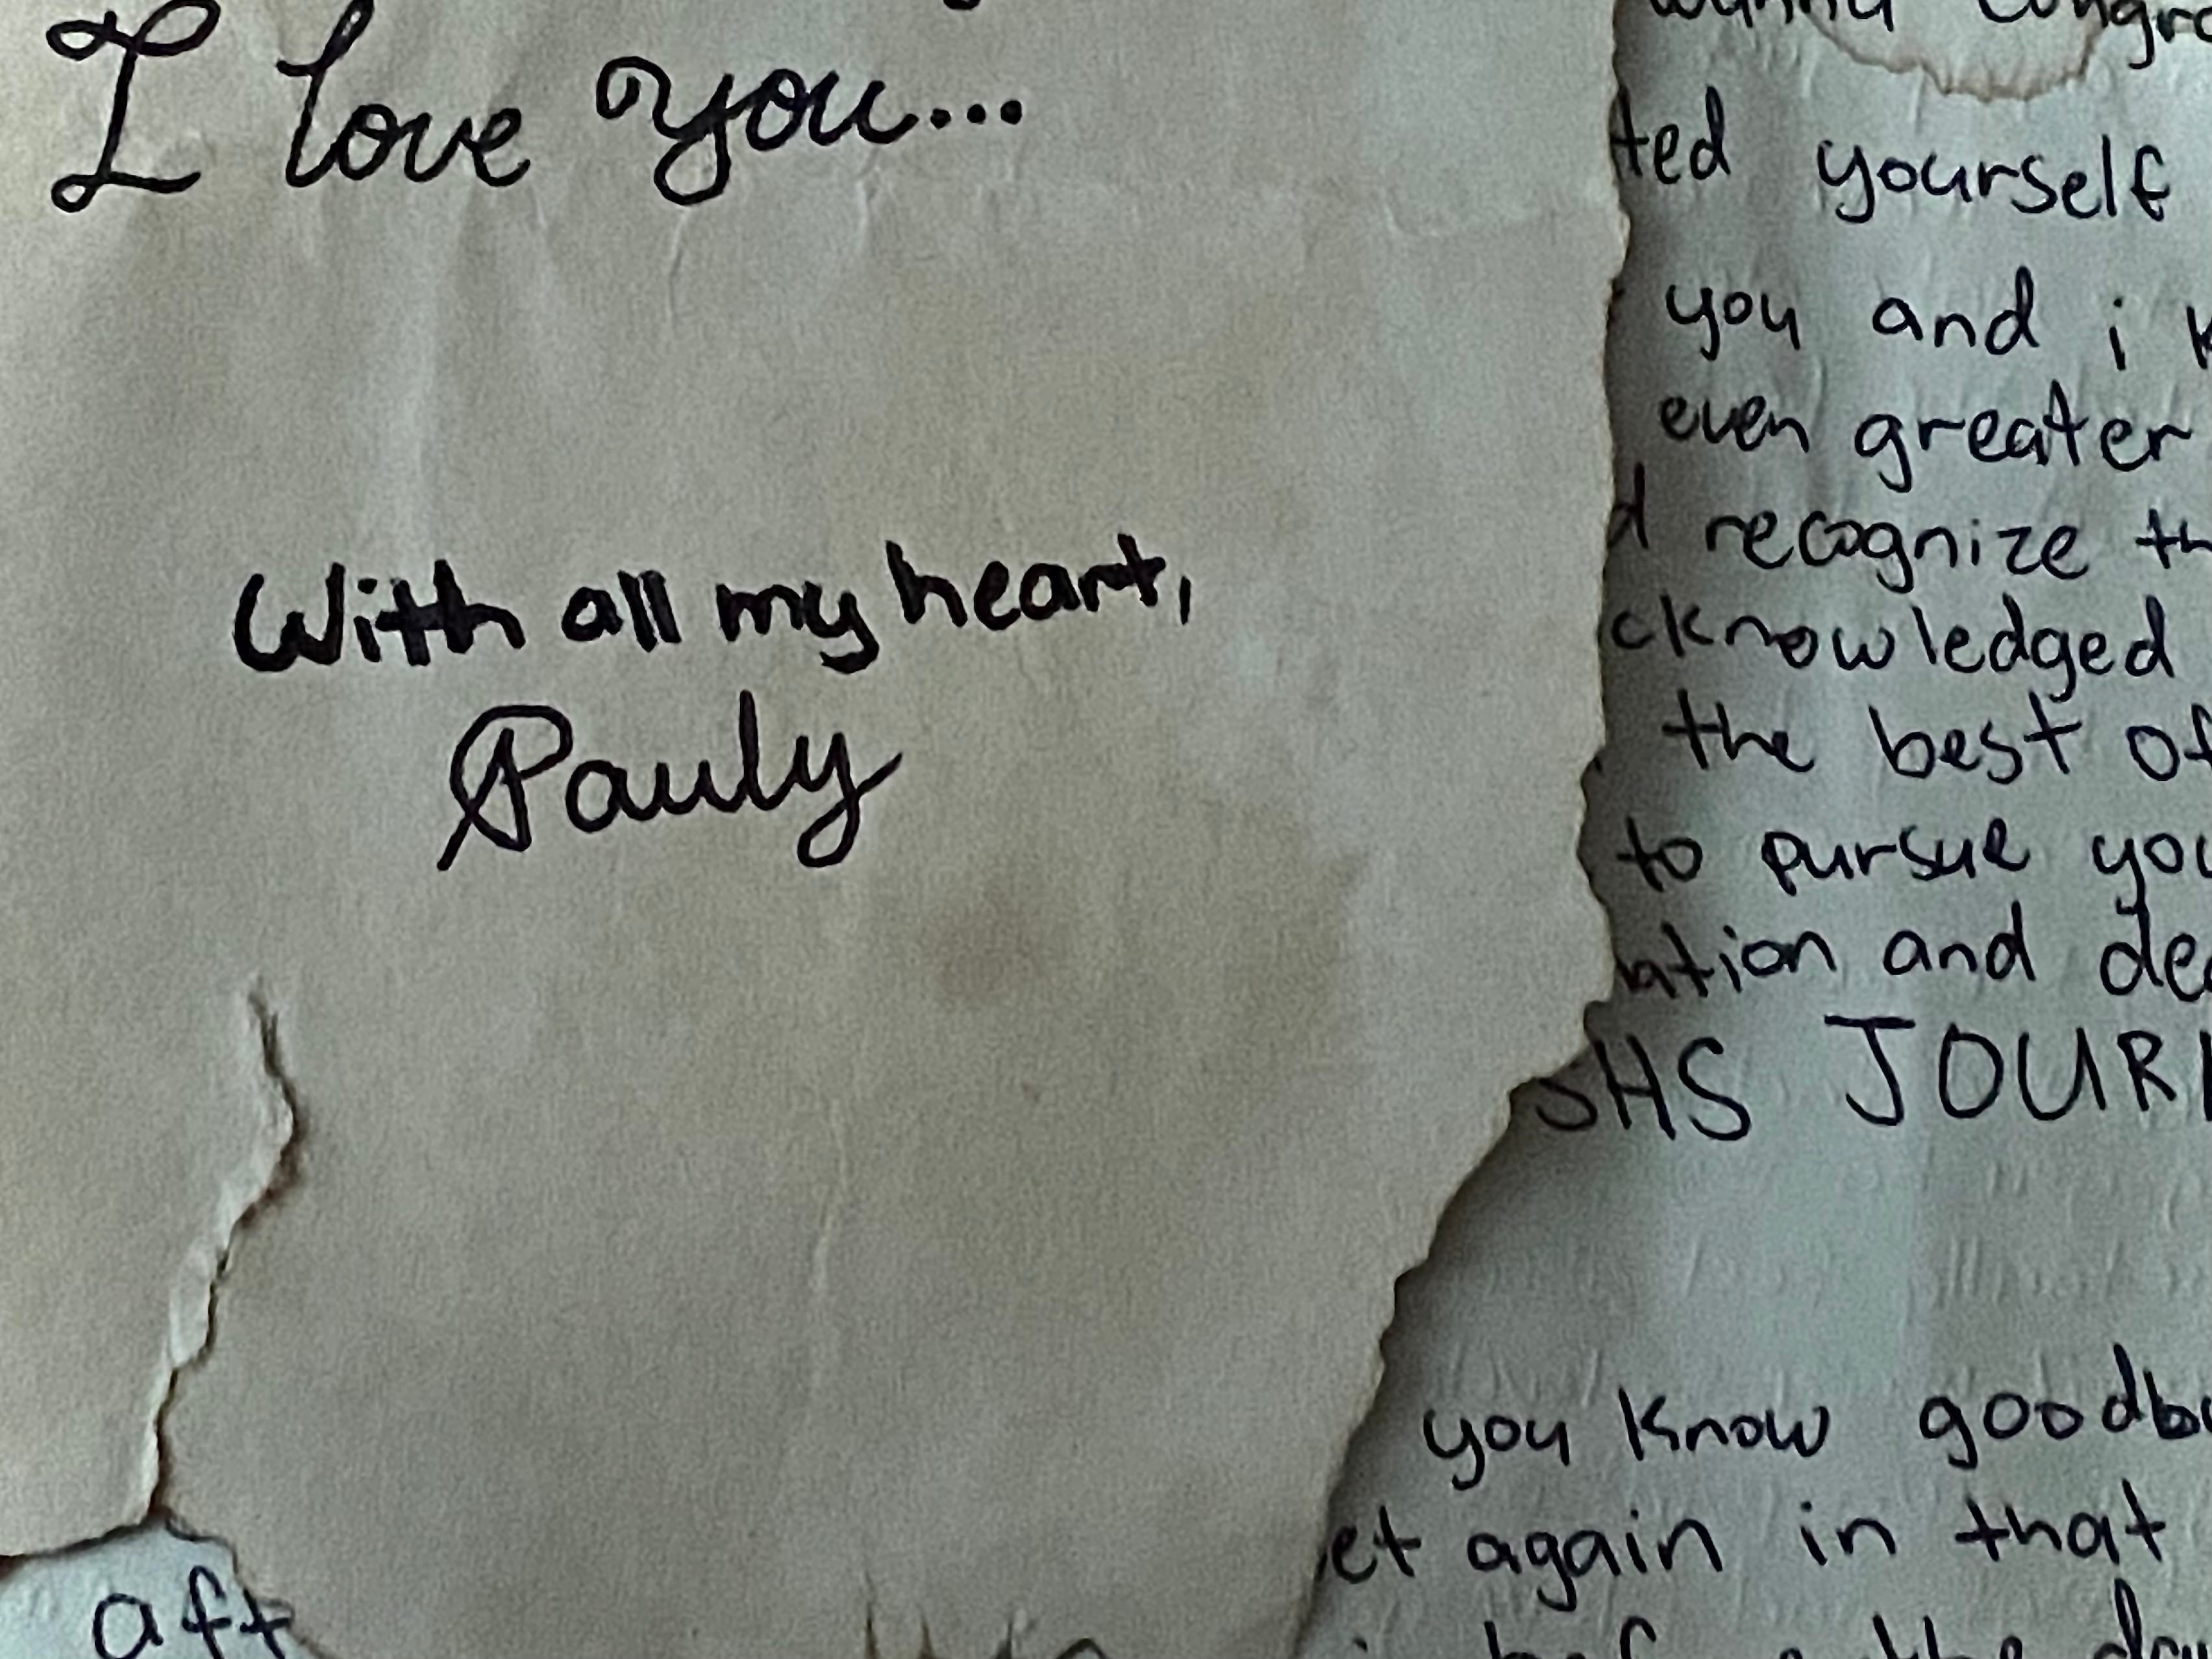 I love you...
With all my heart,
Pauly
wanna congr
ted yourself
you and i k
even greater
d recognize th
cknowledged
the best of
to pursue you
ation and de
SHS JOUR
you know goodb
et again in that
aft